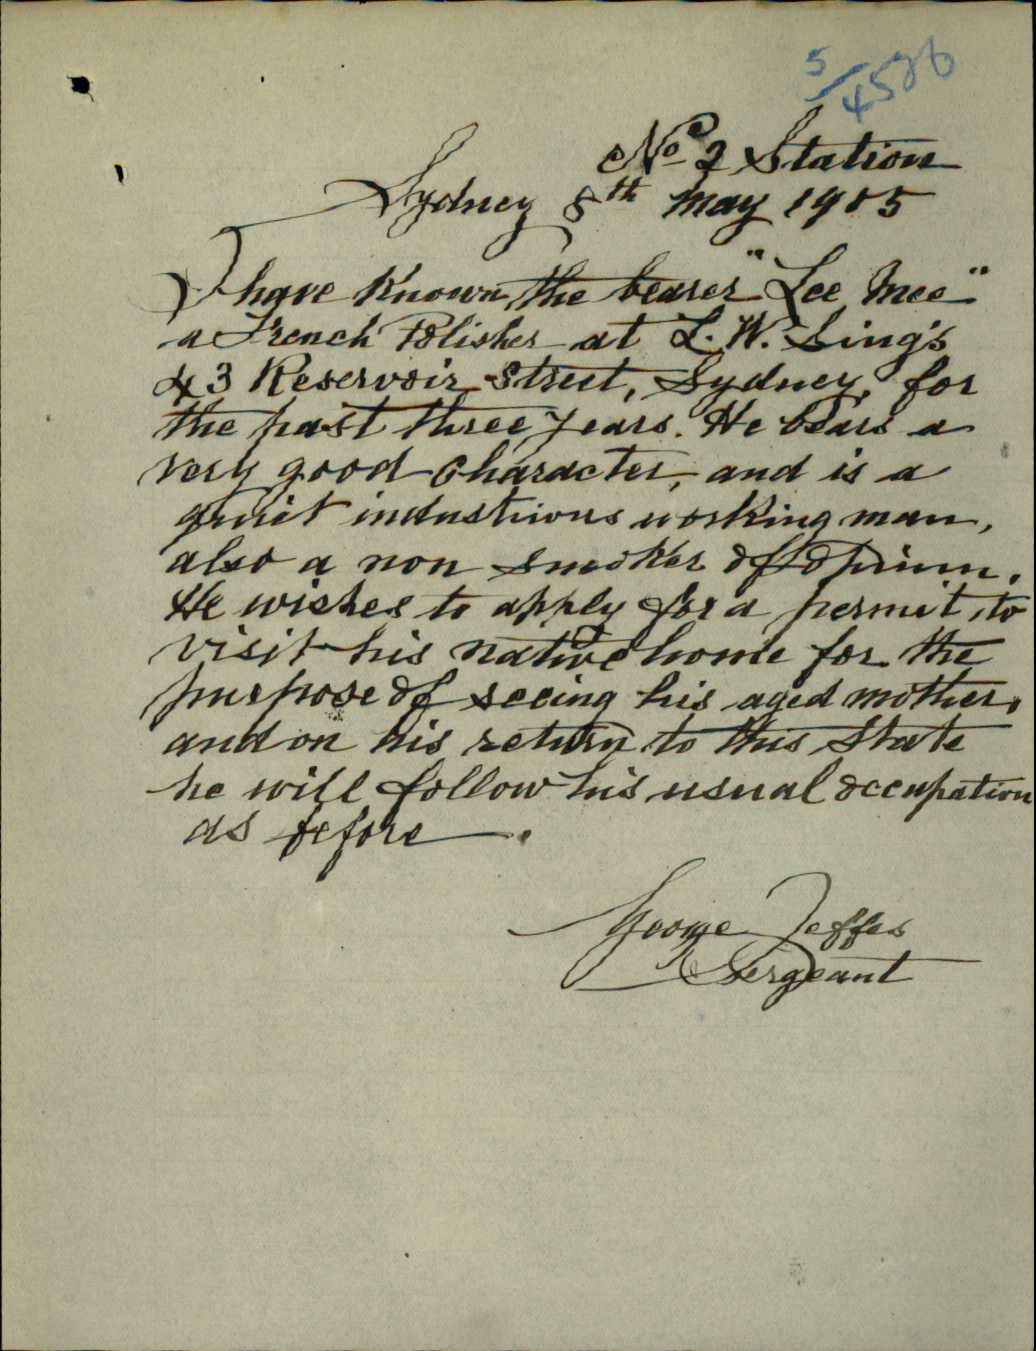 5/4586
No 2 Station
Sydney 8th May 1905
I have Known the bearer "Lee Mee"
a French Polisher at L. W. Sing's
43 Reservoir Street, Sydney, for
the past three years. He bears a
very good character, and is a
quiet industrious working man,
also a non smoker of Opium.
He wishes to apply for a permit, to
visit his native home for the
purpose of seeing his aged mother,
and on his return to this State
he will follow his usual occupation
as before.
George Jeffes
Sergeant